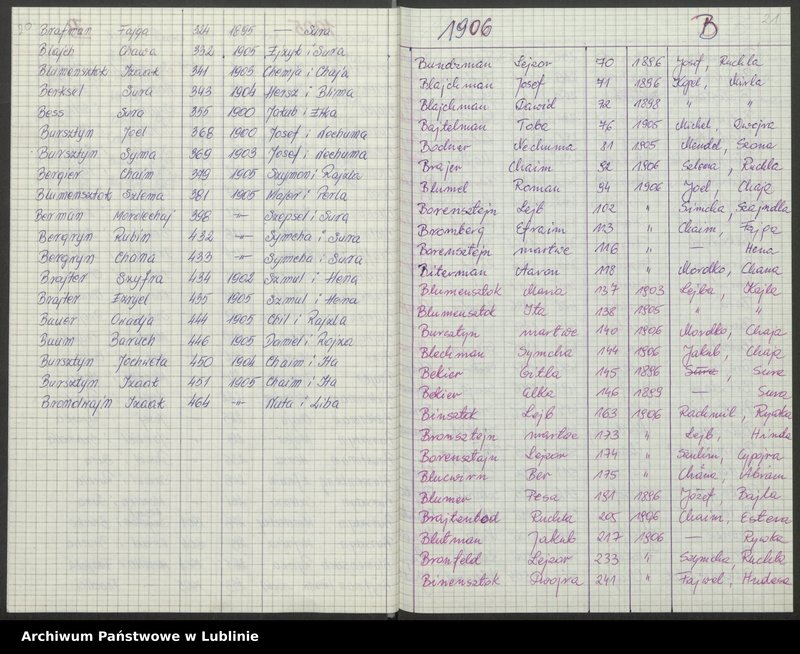 20
Brafman Fajga 324 1895 — Sura
Blajch Chawa 332 1905 Zjzyk i Sura
Blumensztok Izaak 341 1905 Chemja i Chaja
Berksel Sura 343 1904 Hersz i Blima
Bess Sura 355 1900 Jakub i Itka
Bursztyn Joel 368 1900 Josef i Nechuma
Bursztyn Syma 369 1903 Josef i Nechuma
Bergier Chaim 379 1905 Szymon i Rajzla
Blumensztok Szlema 381 1905 Majer i Perla
Berman Mordechaj 398 -"- Szepsel i Sura
Bergryn Rubin 432 -"- Symcha i Sura
Bergryn Chana 433 -"- Symcha i Sura
Brajter Szyfra 434 1902 Szmul i Hena
Brajter Izrael 435 1905 Szmul i Hena
Bauer Owadja 444 1905 Chil i Rajzla
Baum Baruch 446 1905 Daniel i Rojza
Bursztyn Jochweta 450 1904 Chaim i Ita
Bursztyn Izaak 451 1905 Chaim i Ita
Brondwajn Izaak 464 -"- Nuta i Liba
1906 B 21
Bunderman Lejzor 70 1896 Josef, Ruchla
Blajchman Josef 71 1896 Kopel, Mirla
Blajchman Dawid 72 1898 " "
Bajtelman Toba 76 1905 Michel, Dwojra
Bodner Nechuma 81 1905 Mendel, Szona
Brajer Chaim 92 1906 Szloma, Ruchla
Blumel Roman 94 1906 Joel, Chaja
Borensztejn Lejb 102 " Simcha, Szajndla
Bromberg Efraim 113 " Chaim, Fajga
Borensztejn martwe 116 " — Hena
Biterman Aaron 118 " Mordko, Chana
Blumensztok Maria 137 1903 Lejba, Kajla
Blumensztok Ita 138 1905 " "
Bursztyn martwe 140 1906 Mordko, Chaja
Blechman Symcha 144 1906 Jakub, Chaja
Bekier Gitla 145 1896 Sura, Sura
Bekier Alka 146 1899 — Sura
Binsztok Lejb 163 1906 Rachmil, Rywka
Bronsztejn martwe 173 " Lejb, Hinda
Borensztajn Lejzor 174 " Szulim, Cypojra
Blucwirn Ber 175 " Chana, Abram
Blumer Pesa 191 1896 Józef, Bajla
Brajtenbod Ruchla 205 1906 Chaim, Estera
Blutman Jakub 217 1906 — Rywka
Bronfeld Lejzor 233 " Szymcha, Ruchla
Binensztok Dwojra 241 " Fajwel, Hudesa
Archiwum Państwowe w Lublinie